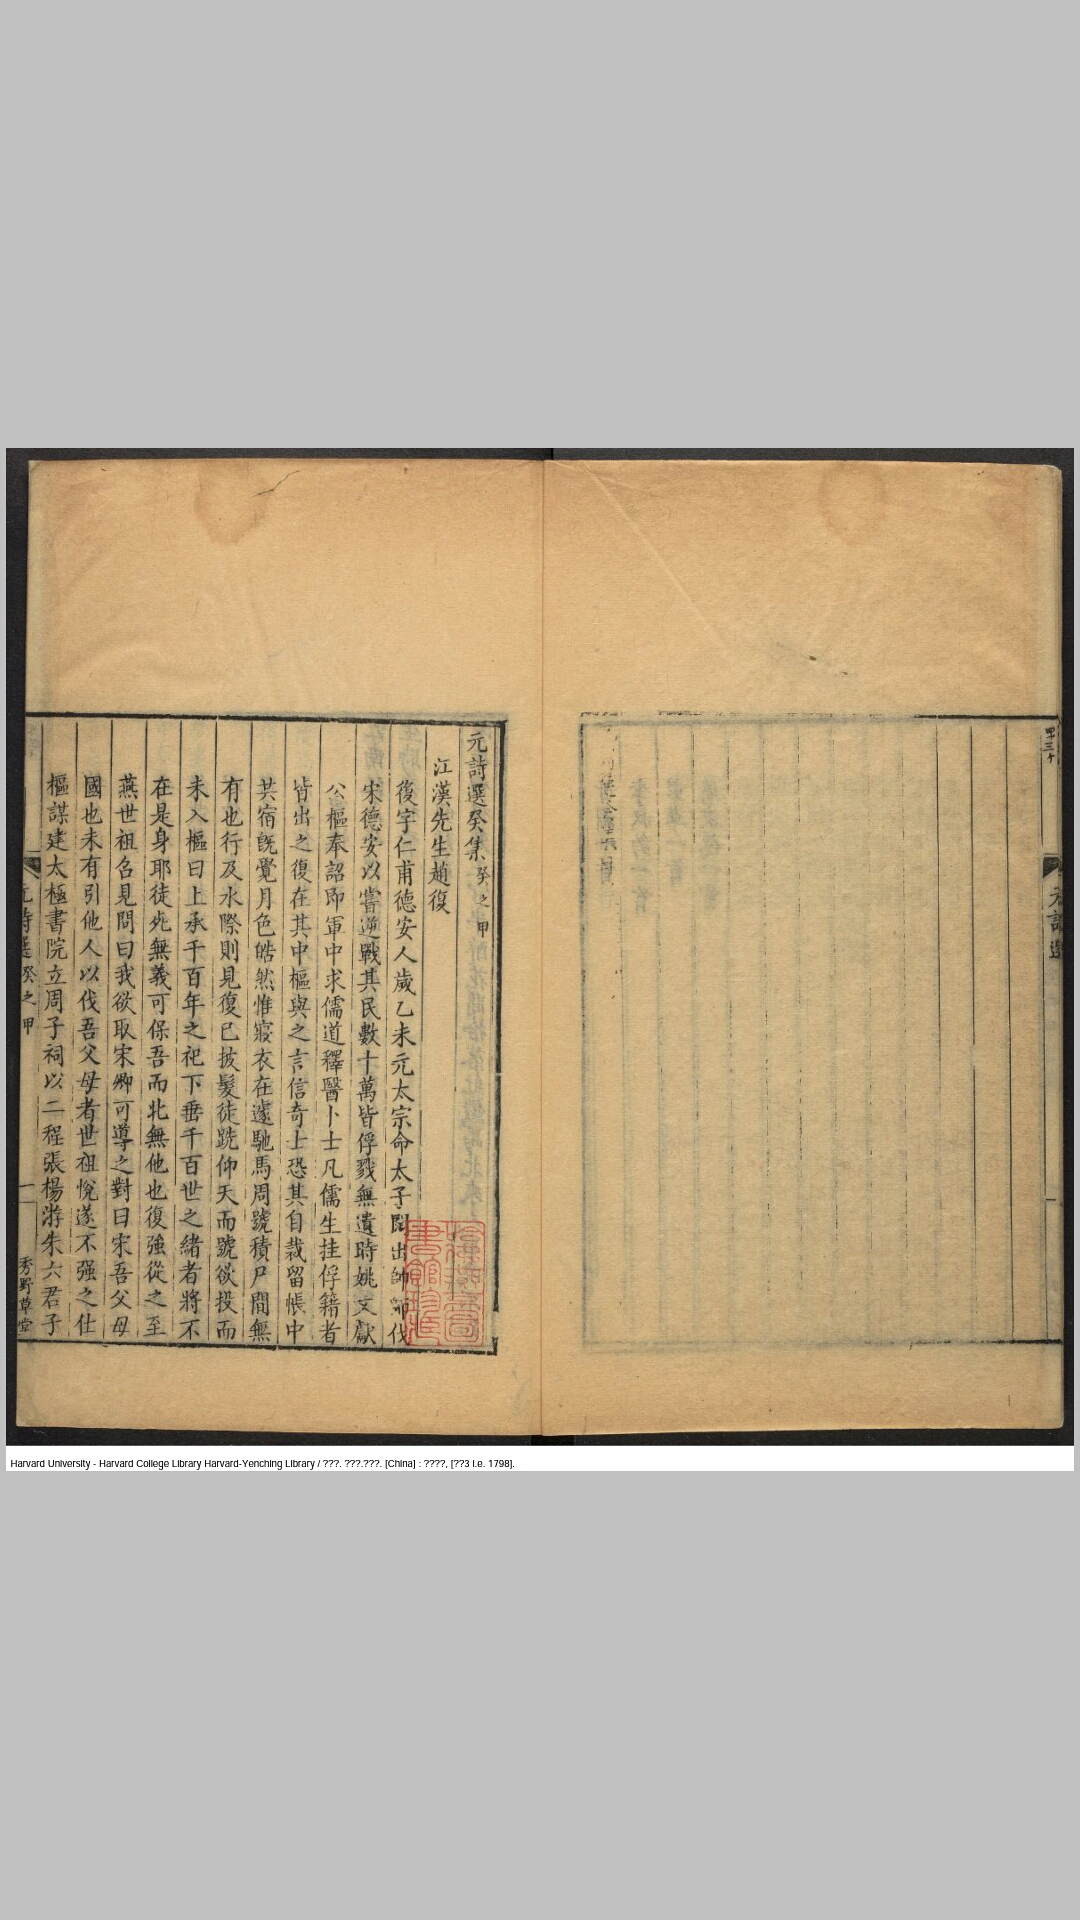 四三十
元詩選
一
元詩選癸集 癸之甲
江漢先生趙復
復字仁甫德安人歲乙未元太宗命太子闊出帥師伐
宋德安以嘗逆戰其民數十萬皆俘戮無遺時姚文獻
公樞奉詔即軍中求儒道釋醫卜士凡儒生挂俘籍者
皆出之復在其中樞與之言信奇士恐其自裁留帳中
共宿既覺月色皓然惟寢衣在遽馳馬周號積尸間無
有也行及水際則見復已披髮徒跣仰天而號欲投而
未入樞曰上承千百年之祀下垂千百世之緒者將不
在是身耶徒死無義可保吾而北無他也復強從之至
燕世祖召見問曰我欲取宋卿可導之對曰宋吾父母
國也未有引他人以伐吾父母者世祖悅遂不强之仕
樞謀建太極書院立周子祠以二程張楊游朱六君子
元詩選 癸之甲
一
秀野草堂
Harvard University - Harvard College Library Harvard-Yenching Library / ???. ???.???. [China] : ????, [??3 i.e. 1798].